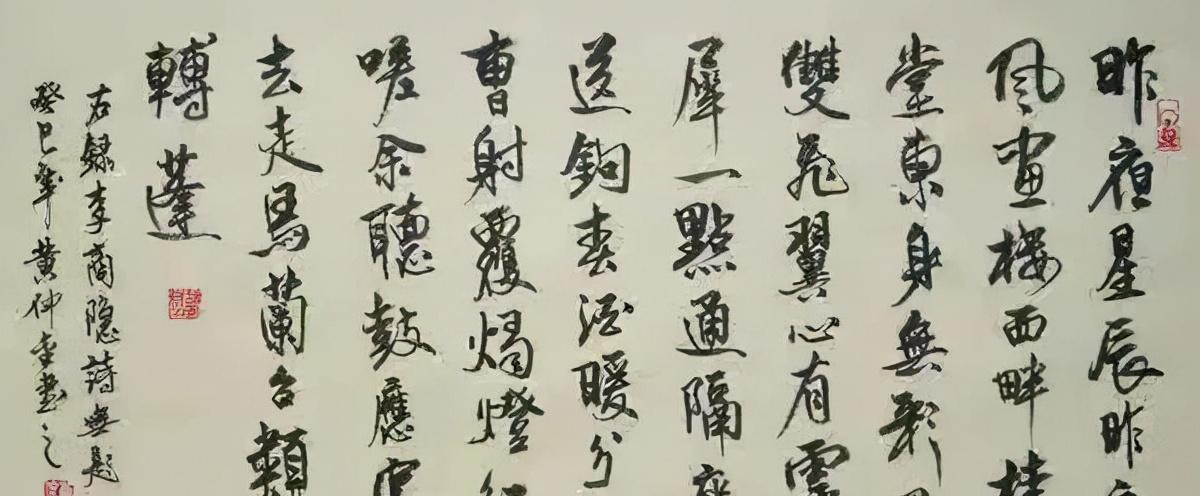 昨夜星辰昨
风畫楼西畔桂
堂東身無彩
雙飛翼心有
犀一點通隔
送鉤春酒暖分
曹射覆燭燈
嗟余聽鼓應
去走馬蘭台類
轉蓬
右錄李商隐詩無題
癸巳年黄仲書之